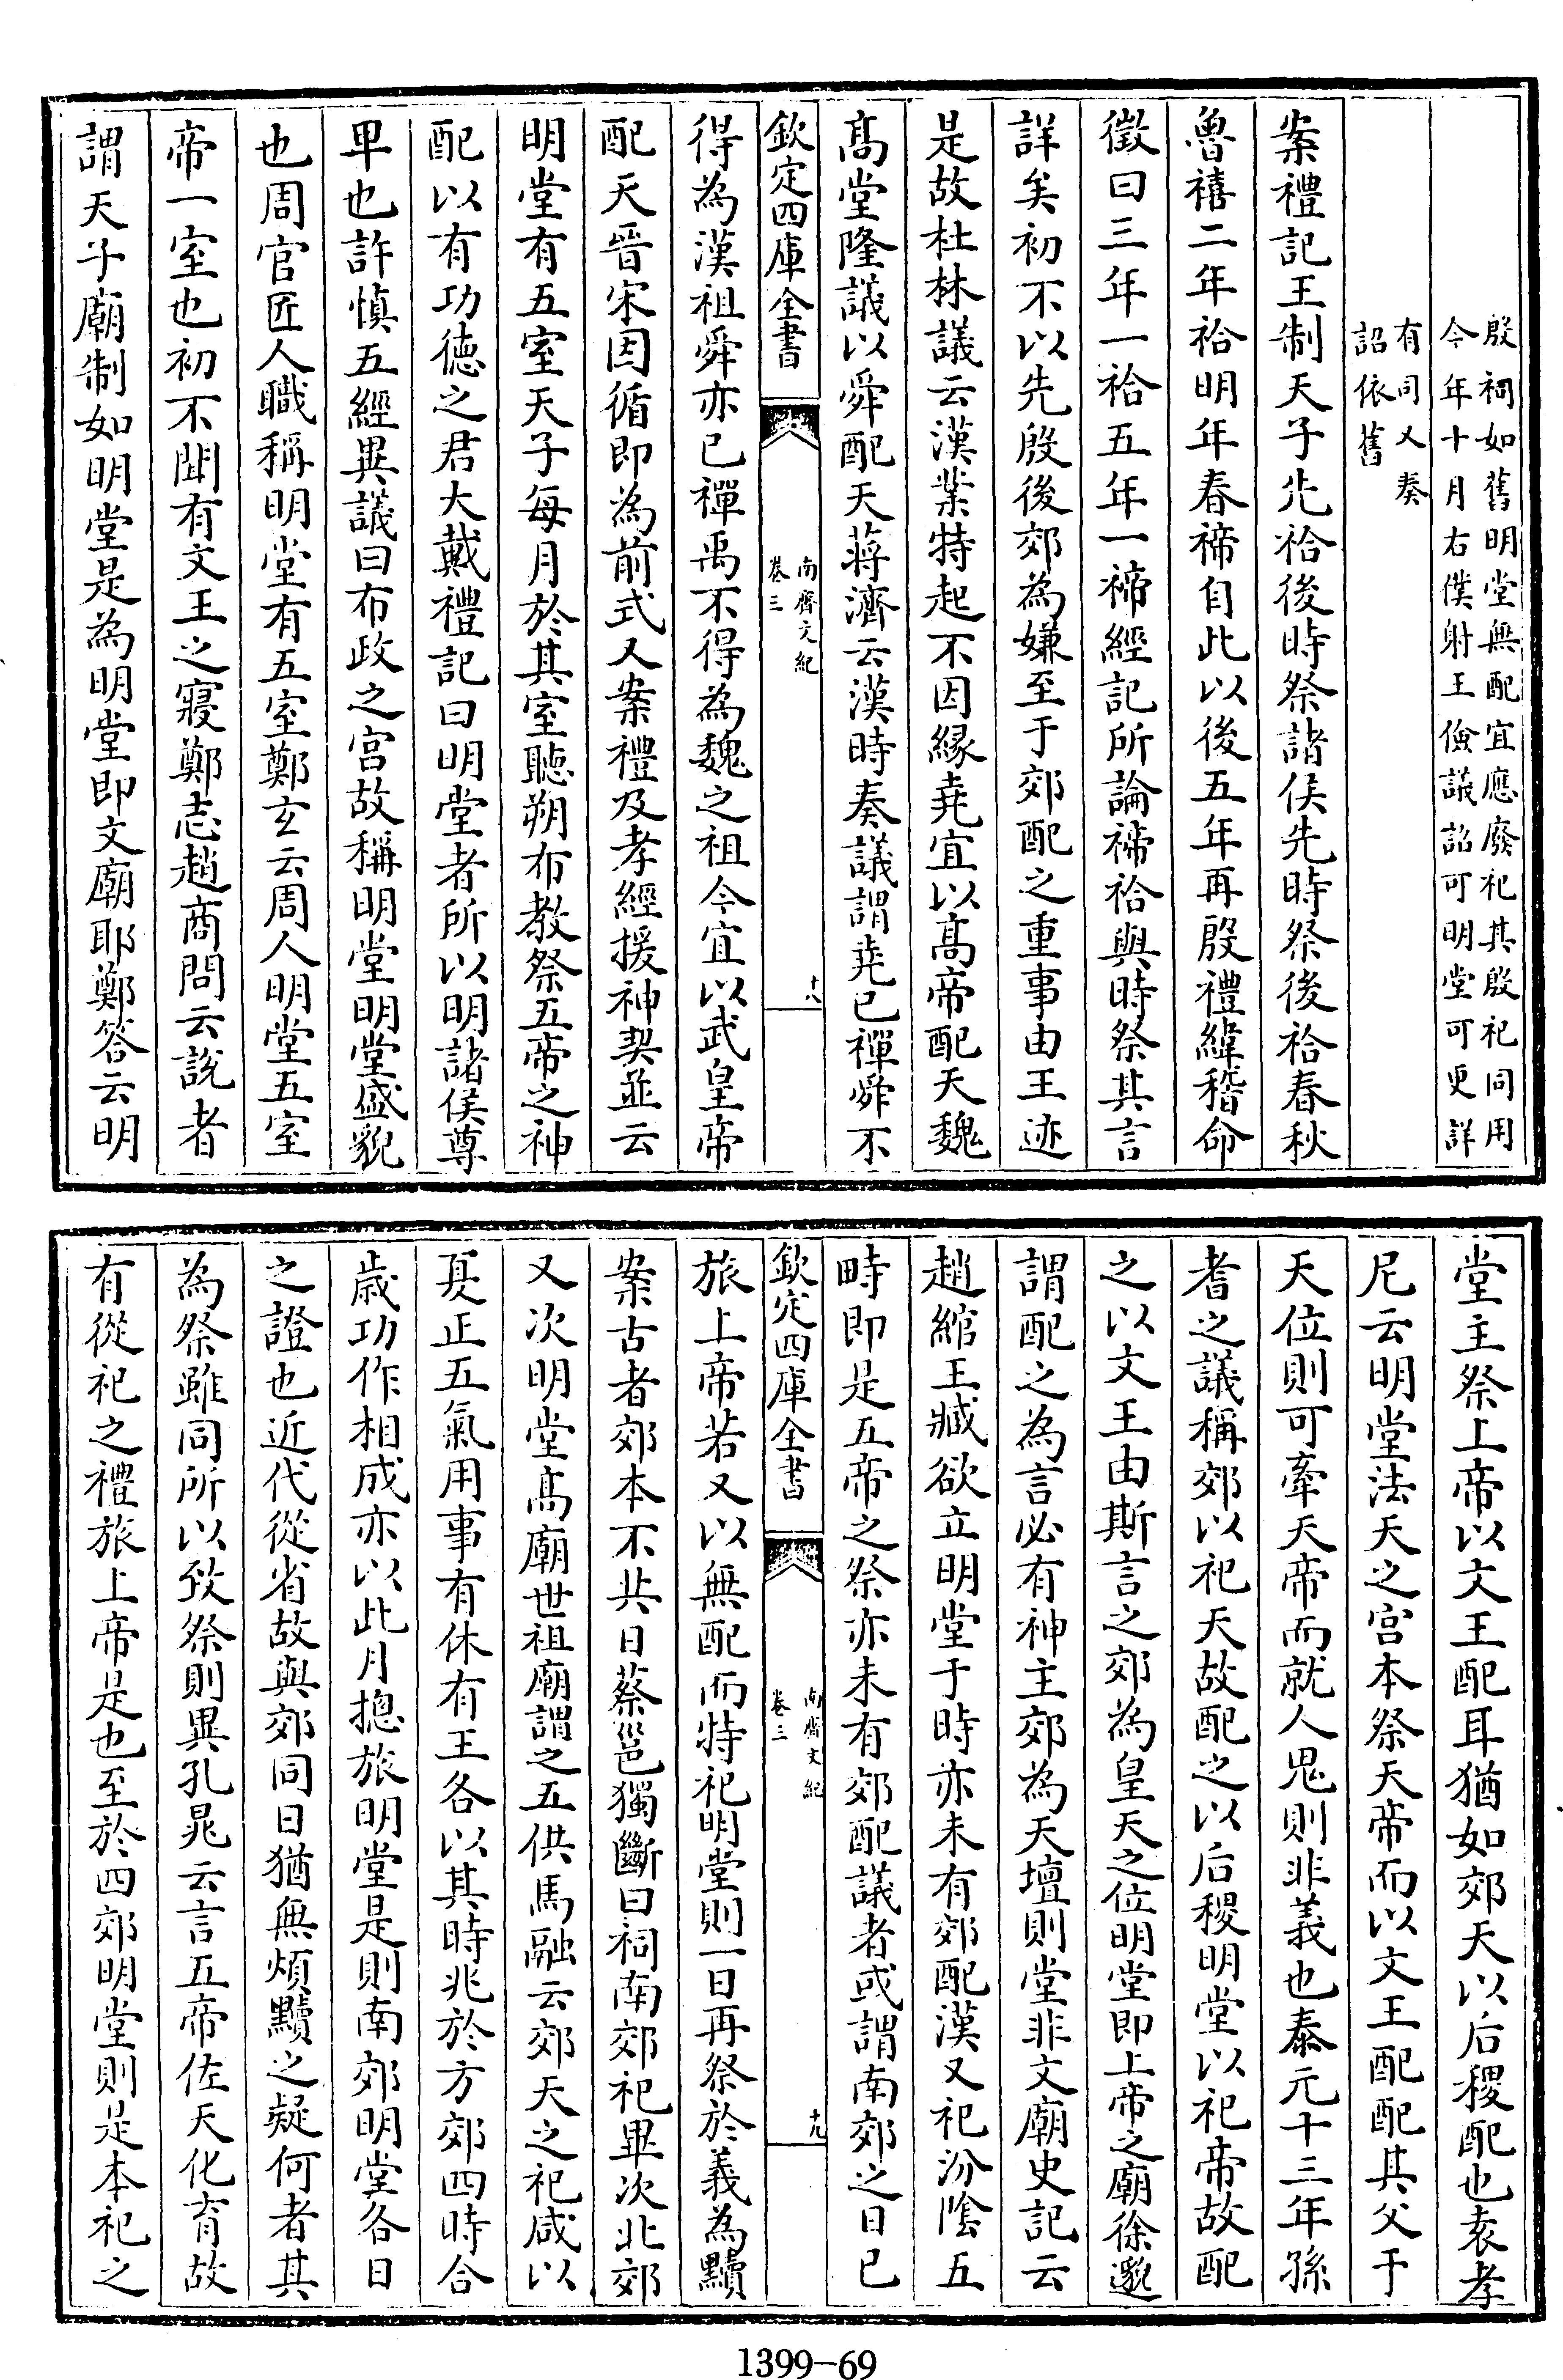 殷祠如舊明堂無配宜應廢祀其殷祀同用
今年十月右僕射王儉議詔可明堂可更詳
有司又奏
詔依舊
案禮記王制天子先祫後時祭諸侯先時祭後祫春秋
魯禧二年祫明年春禘自此以後五年再殷禮緯稽命
徵曰三年一祫五年一禘經記所論禘祫與時祭其言
詳矣初不以先殷後郊為嫌至于郊配之重事由王迹
是故杜林議云漢業特起不因緣堯宜以髙帝配天魏
髙堂隆議以舜配天蔣濟云漢時奏議謂堯已禪舜不
欽定四庫全書
南齊文紀
卷三
十八
得為漢祖舜亦已禪禹不得為魏之祖今宜以武皇帝
配天晉宋因循即為前式又案禮及孝經援神契並云
明堂有五室天子每月於其室聽朔布教祭五帝之神
配以有功徳之君大戴禮記曰明堂者所以明諸侯尊
卑也許慎五經異議曰布政之宫故稱明堂明堂盛貌
也周官匠人職稱明堂有五室鄭玄云周人明堂五室
帝一室也初不聞有文王之寢鄭志趙商問云說者
謂天子廟制如明堂是為明堂即文廟耶鄭答云明
堂主祭上帝以文王配耳猶如郊天以后稷配也袁孝
尼云明堂法天之宫本祭天帝而以文王配配其父于
天位則可牽天帝而就人鬼則非義也泰元十三年孫
耆之議稱郊以祀天故配之以后稷明堂以祀帝故配
之以文王由斯言之郊為皇天之位明堂即上帝之廟徐邈
謂配之為言必有神主郊為天壇則堂非文廟史記云
趙綰王臧欲立明堂于時亦未有郊配漢又祀汾隂五
畤即是五帝之祭亦未有郊配議者或謂南郊之日已
欽定四庫全書
南齊文紀
卷三
十九
旅上帝若又以無配而特祀明堂則一日再祭於義為黷
案古者郊本不共日蔡邕獨斷曰祠南郊祀畢次北郊
又次明堂髙廟世祖廟謂之五供馬融云郊天之祀咸以
夏正五氣用事有休有王各以其時兆於方郊四時合
歳功作相成亦以此月摠旅明堂是則南郊明堂各日
之證也近代從省故與郊同日猶無煩黷之疑何者其
為祭雖同所以致祭則異孔晁云言五帝佐天化育故
有從祀之禮旅上帝是也至於四郊明堂則是本祀之
1399-69